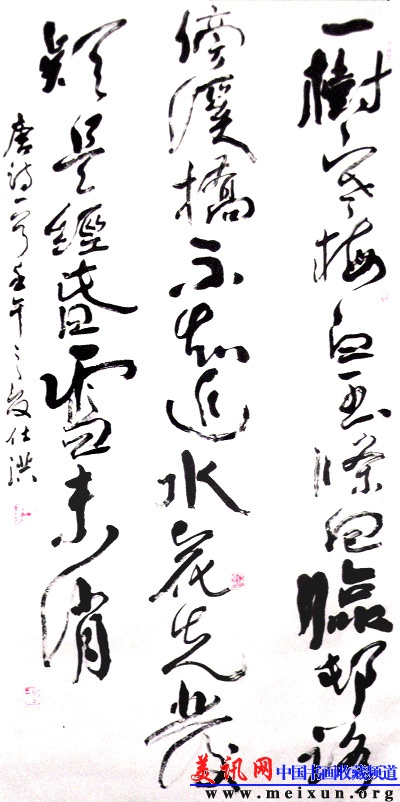 一樹寒梅白玉條迥臨邨路
傍溪橋不知近水花先發
疑是經春雪未消
唐詩一首壬午之夏仕洪
美讯网 中国书画收藏频道
www.meixun.org